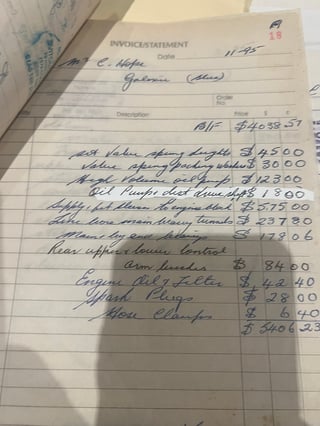 A
18
INVOICE/STATEMENT
Date 11-95
Mr C. Hope
Galaxie (Blue)
Order No.
Description Price $ c
B/F $4038.57
Set Valve spring heights $ 45 00
Valve spring packing washers $ 30 00
High Volume oil pump $ 123 00
Oil Pump & dist drive $ 18 00
Supply, fit to engine block $ 575 00
Line bore main bearing tunnels $ 237 80
Main, big end $ 178 06
Rear upper & lower control
arm bushes $ 84 00
Engine Oil & Filter $ 42 40
Spark Plugs $ 28 00
Hose Clamps $ 6 40
$ 5406 23